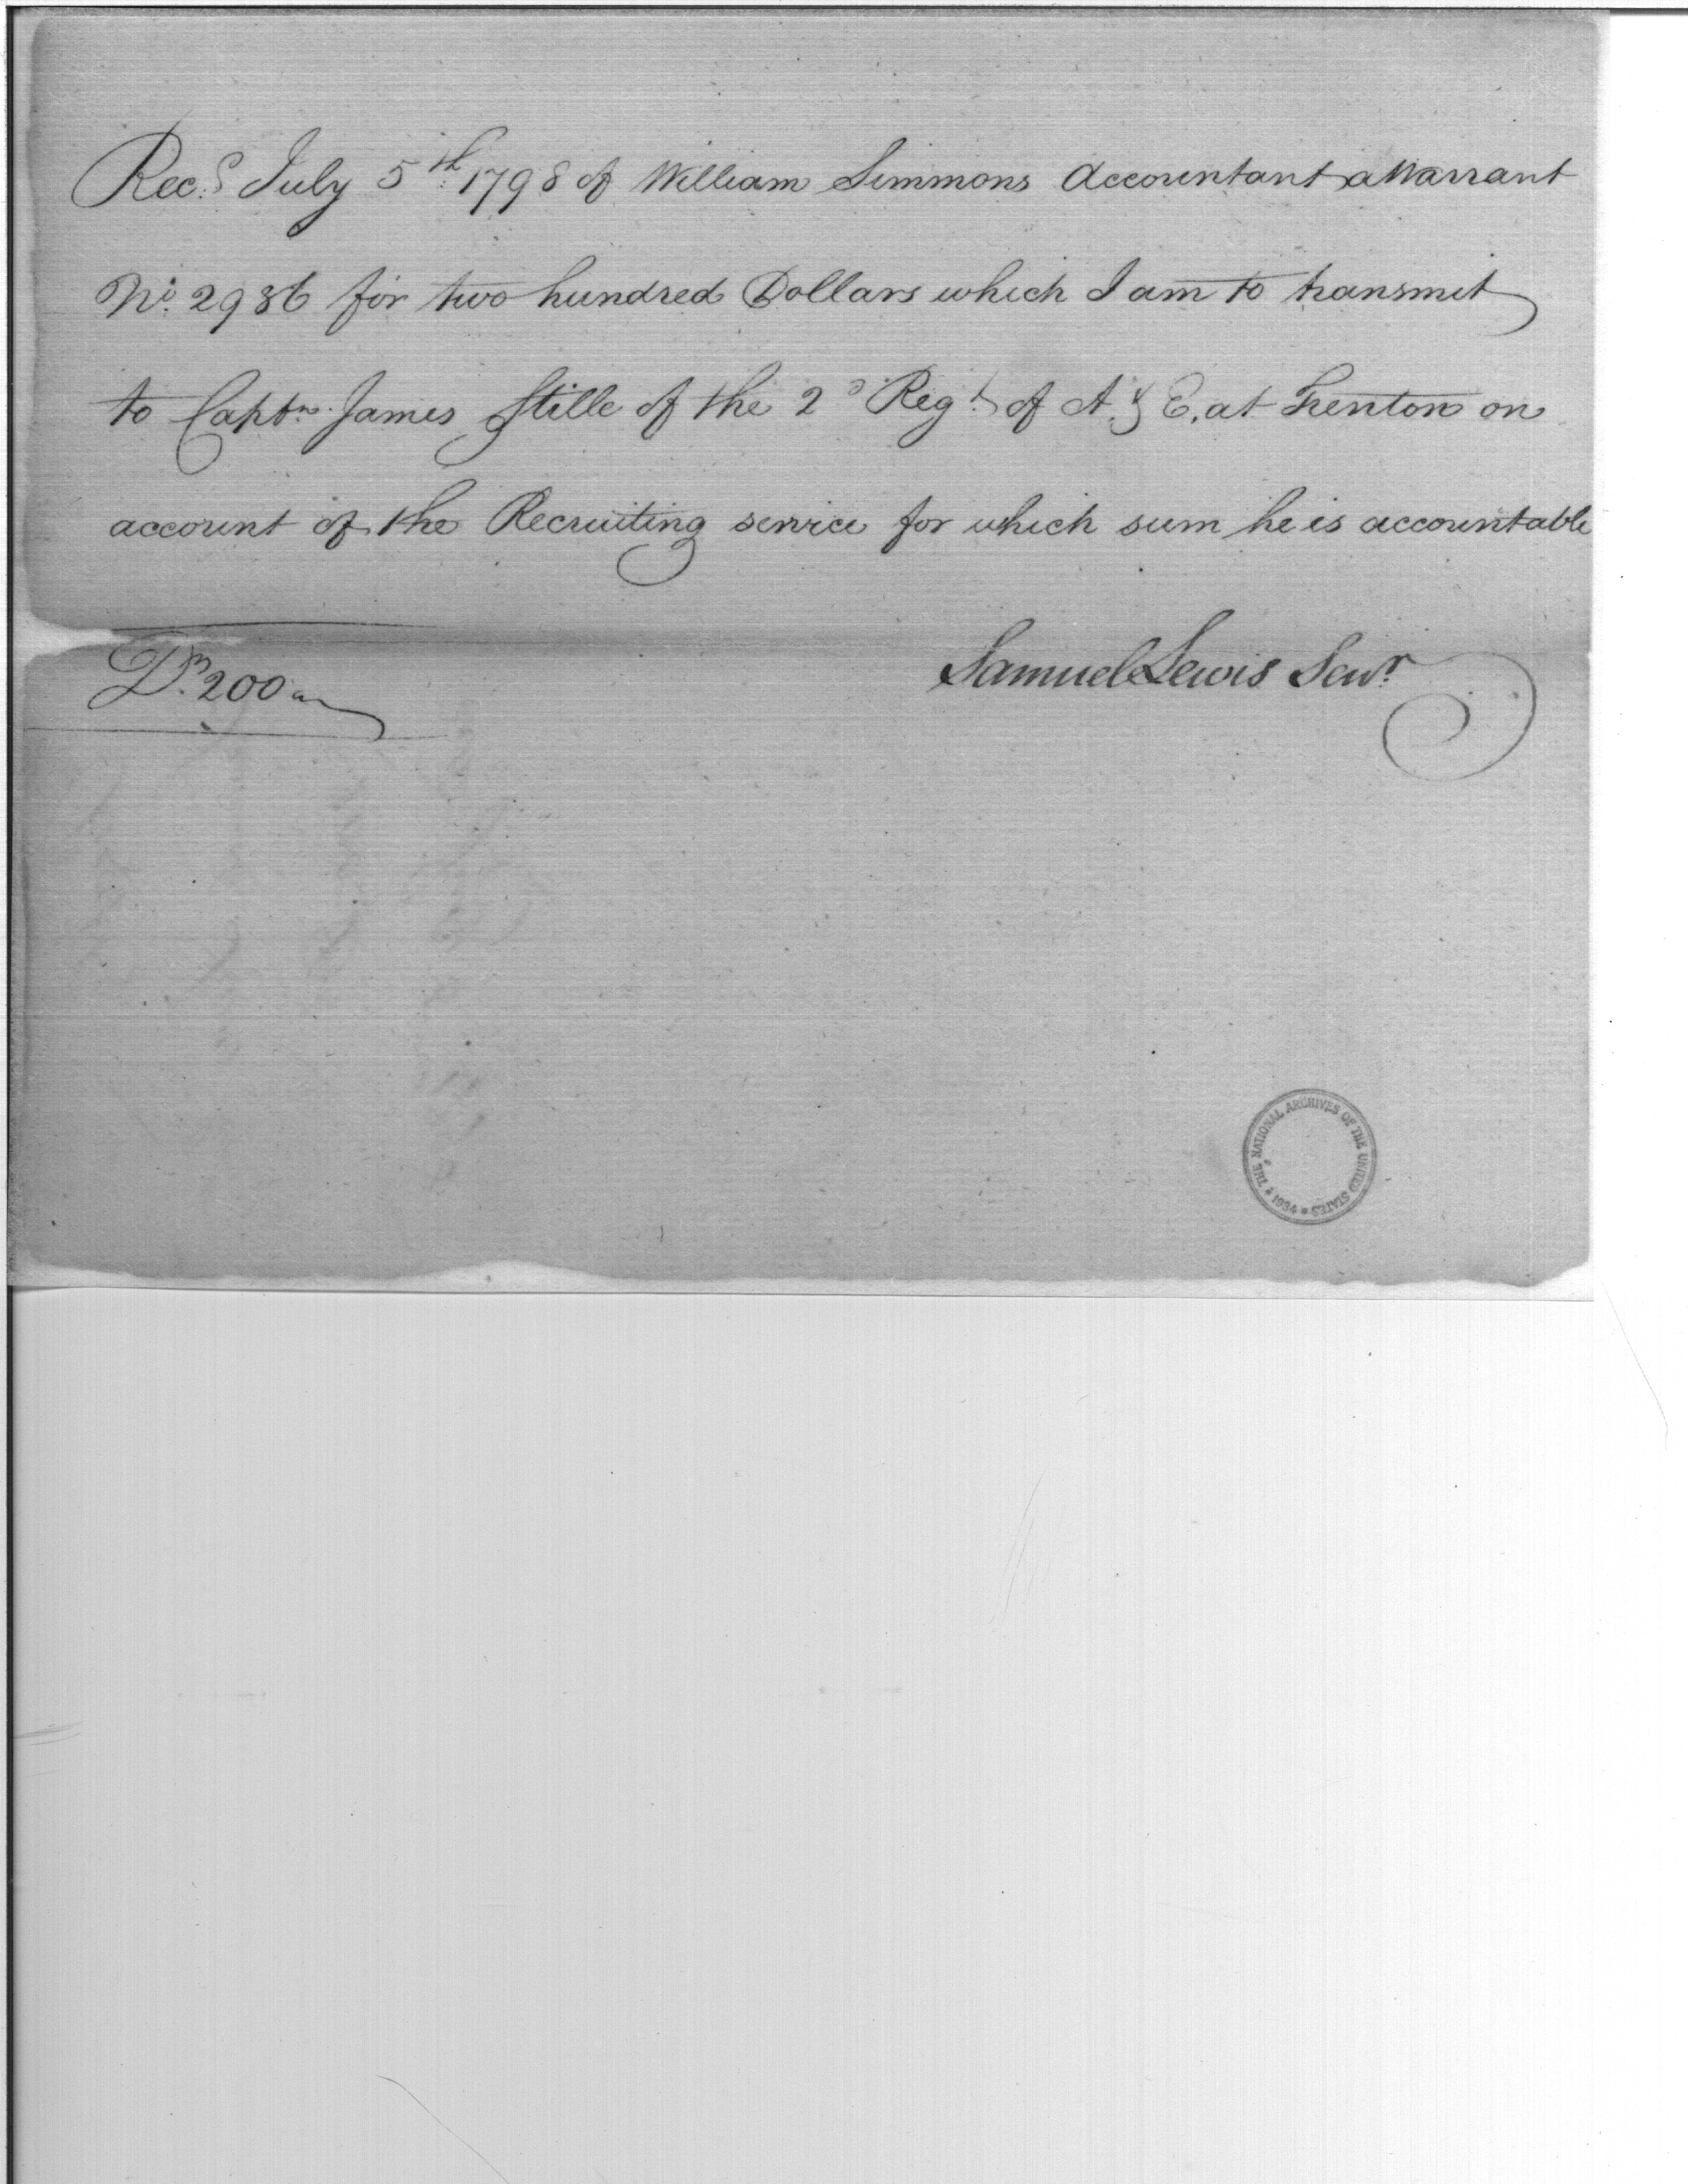 Rec.d July 5th. 1798 of William Simmons Accountant a Warrant
No. 2986 for two hundred Dollars which I am to transmit
to Captn. James Stille of the 2d Regt. of A. & E. at Trenton on
account of the Recruiting service for which sum he is accountable
Drs. 200
Samuel Lewis Senr.
THE NATIONAL ARCHIVES OF THE UNITED STATES * 1934 *